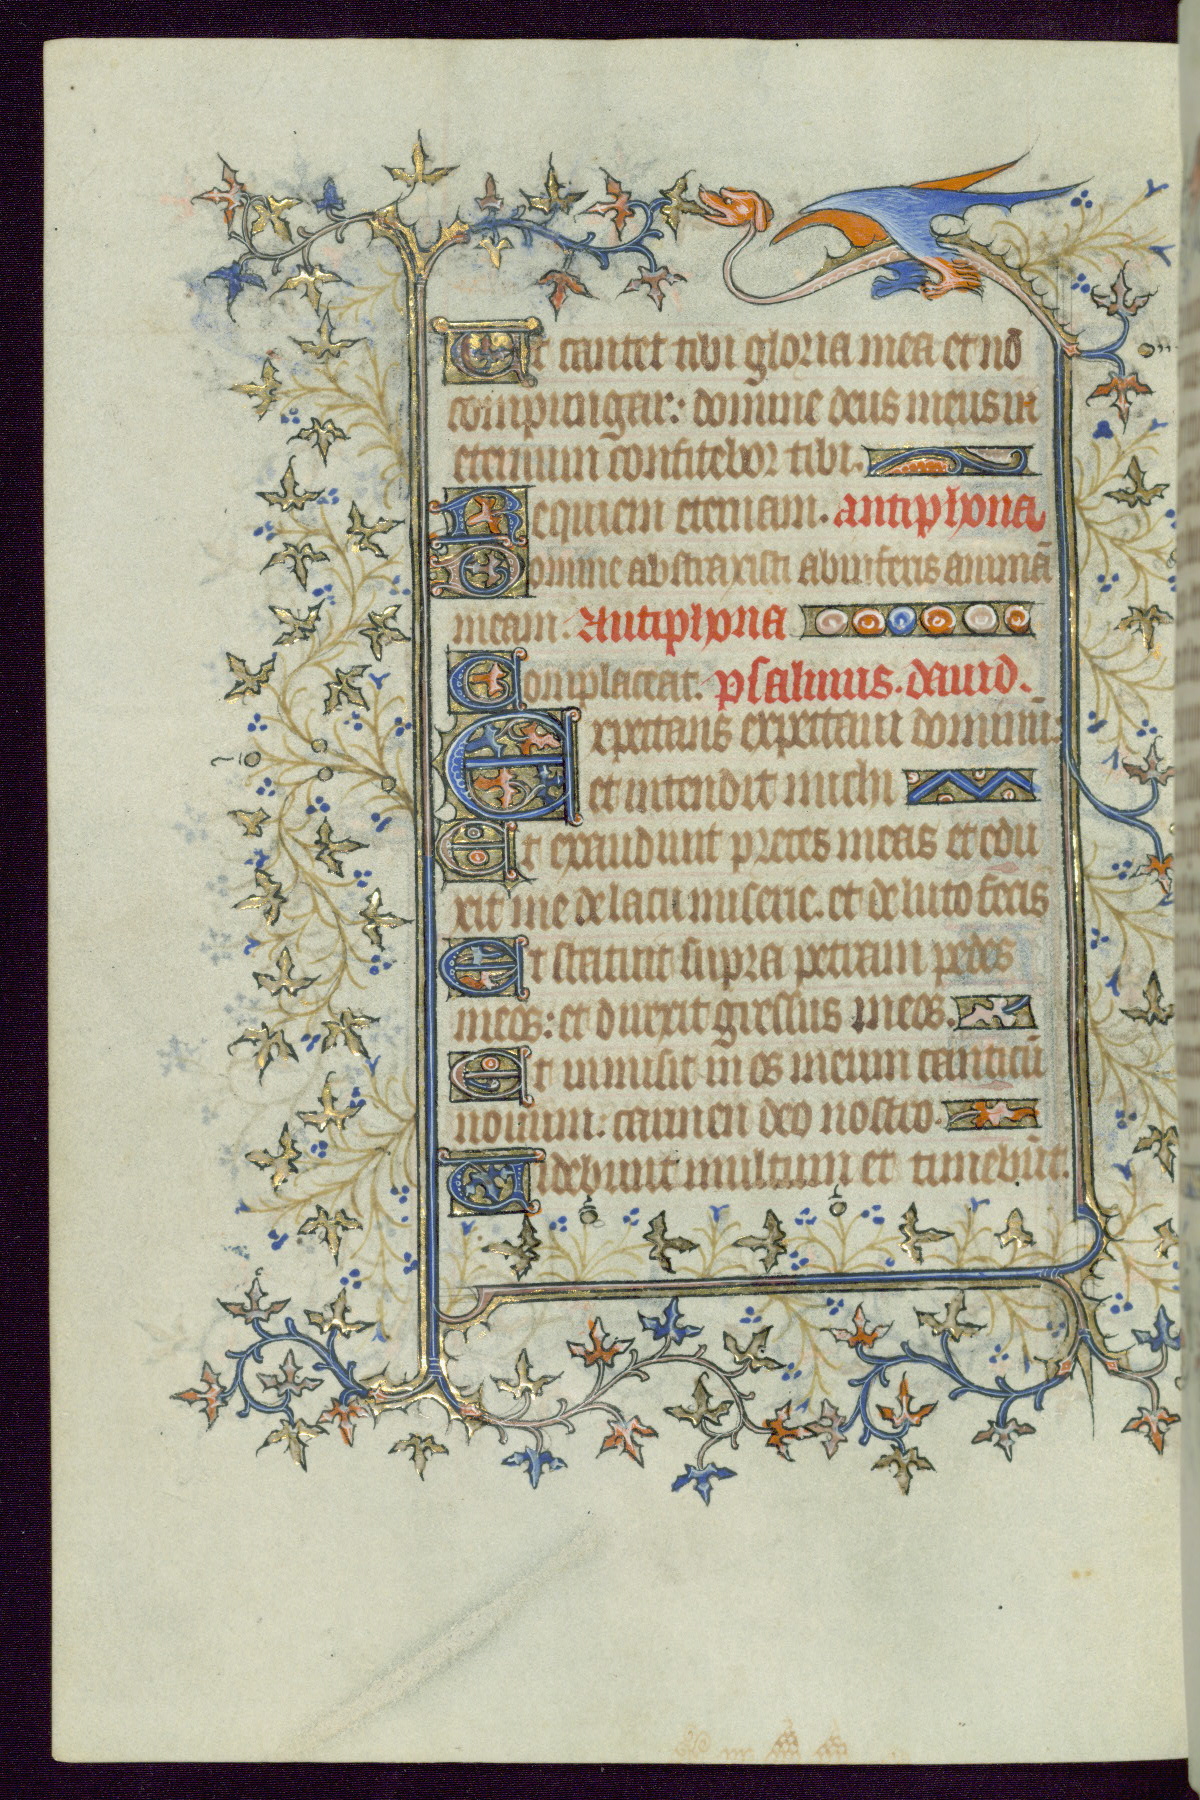 Ut cantet tibi gloria mea et nō
compungar: domine deus meus in
eternum confitebor tibi.
Requiem eternam. antiphona
Domine abstraxisti ab inferis animā
meam. Antiphona
Complaceat. psalmus. dauid.
Expectans expectaui dominū:
et intendit michi
Et exaudiuit preces meas et edu
xit me de lacu miserie. et de luto fecis
Et statuit supra petram pedes
meos: et direxit gressus meos.
Et inmisit in os meum canticū
nouum: carmen deo nostro.
Uidebunt multum et timebūt.